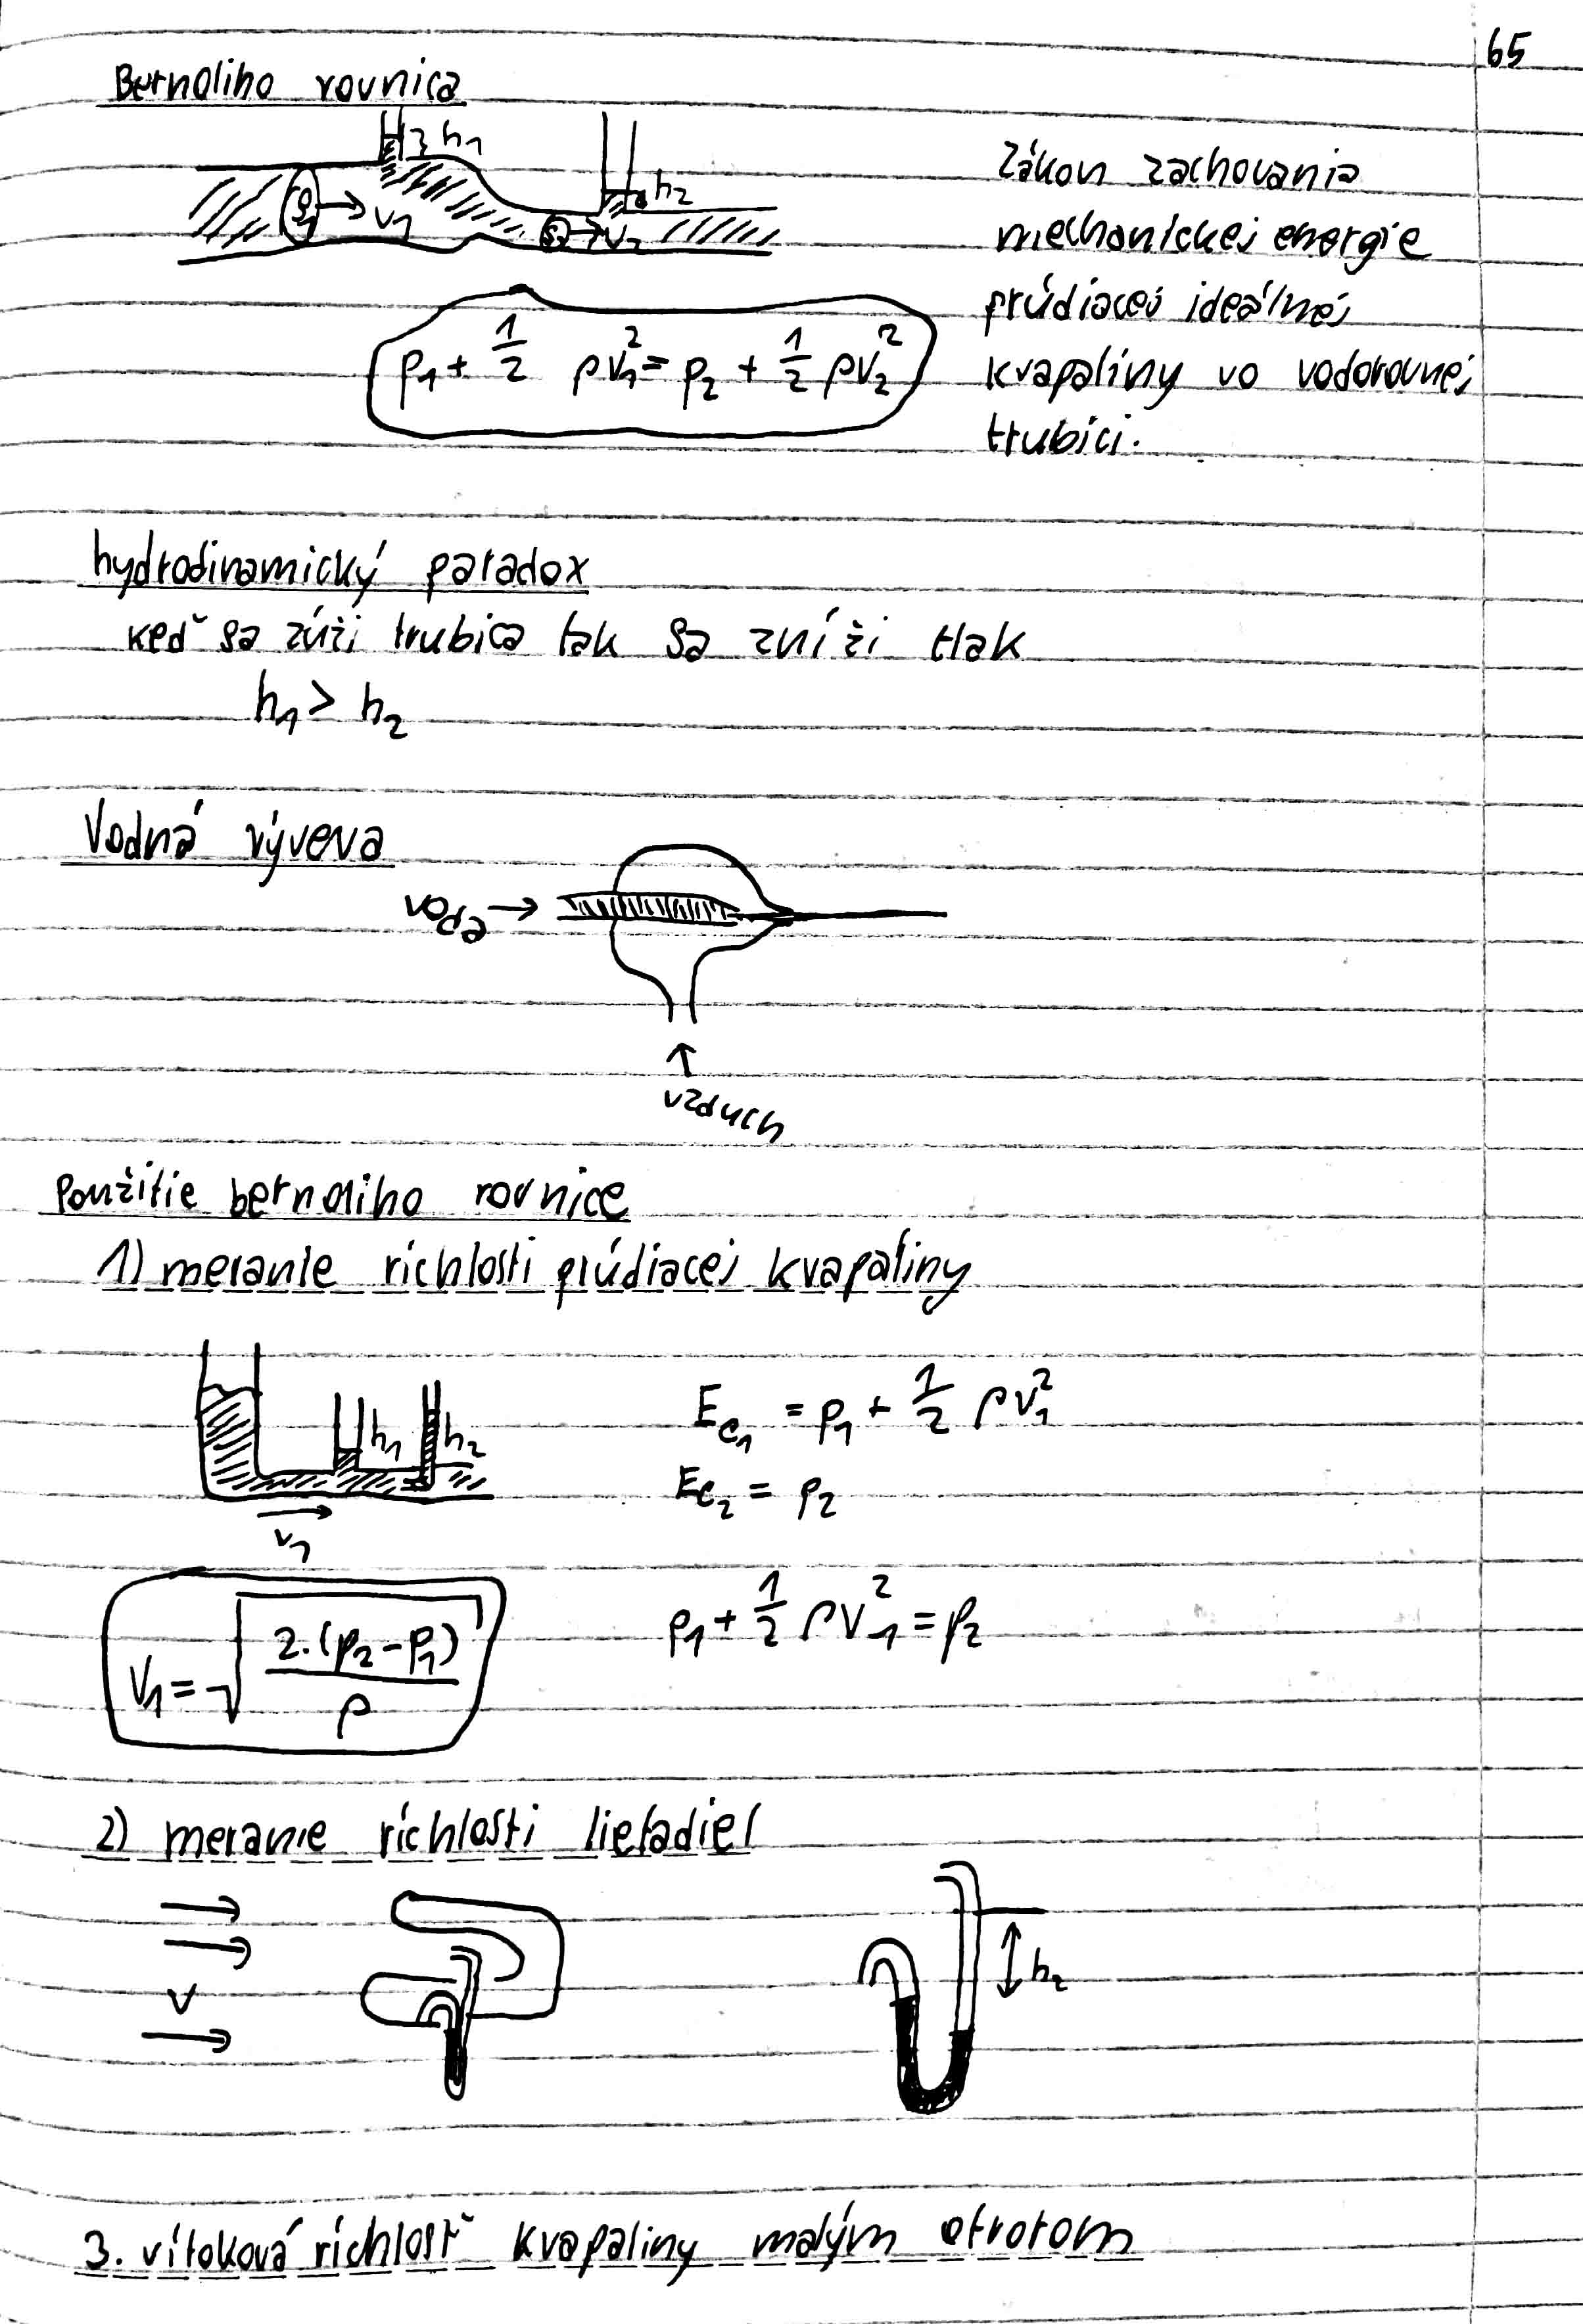 65
Bernoliho rovnica
h₁
h₂
S₁ v₁
S₂ v₂
Zákon zachovania
mechanickej energie
prúdiacej ideálnej
kvapaliny vo vodorovnej
trubici.
p₁ + 1/2 ρv₁² = p₂ + 1/2 ρv₂²
hydrodinamický paradox
keď sa zúži trubica tak sa zníži tlak
h₁ > h₂
Vodná výveva
voda →
↑
vzduch
Použitie bernoliho rovnice
1) meranie richlosti prúdiacej kvapaliny
h₁ h₂
v₁
E_c₁ = p₁ + 1/2 ρv₁²
E_c₂ = p₂
v₁ = √(2.(p₂-p₁)/ρ)
p₁ + 1/2 ρv₁² = p₂
2) meranie ríchlosti lietadiel
v
h₂
3. vítoková ríchlosť kvapaliny malým otvorom